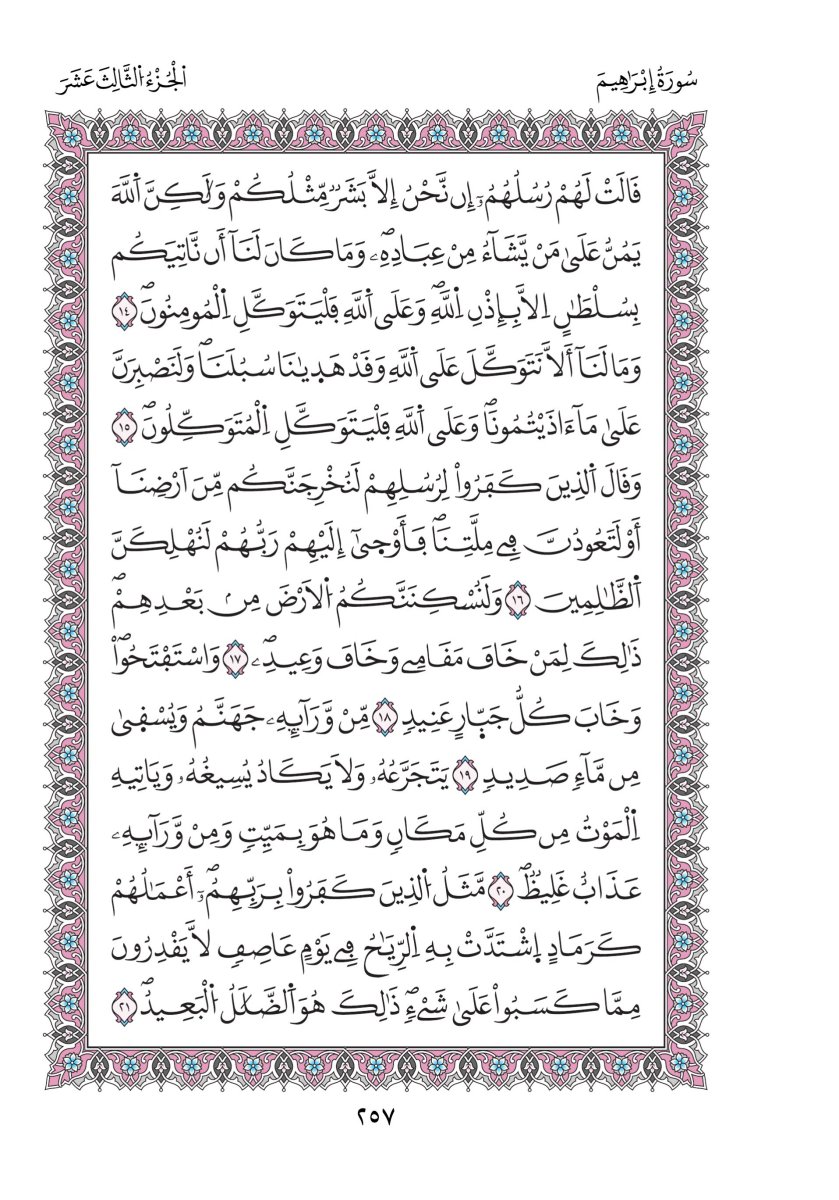 سُورَةُ إِبْرَاهِيمَ
اَلْجُزْءُ الثَّالِثَ عَشَرَ
قَالَتْ لَهُمْ رُسُلُهُمُۥٓ إِن نَّحْنُ إِلَّا بَشَرٌ مِّثْلُكُمْ وَلَٰكِنَّ اَ۬للَّهَ
يَمُنُّ عَلَىٰ مَنْ يَّشَآءُ مِنْ عِبَادِهِۦۖ وَمَا كَانَ لَنَآ أَن نَّاتِيَكُم
بِسُلْطَٰنٍ اِلَّا بِإِذْنِ اِ۬للَّهِۖ وَعَلَى اَ۬للَّهِ فَلْيَتَوَكَّلِ اِ۬لْمُومِنُونَۖ ١٤
وَمَا لَنَآ أَلَّا نَتَوَكَّلَ عَلَى اَ۬للَّهِ وَقَدْ هَد۪يٰنَا سُبُلَنَاۖ وَلَنَصْبِرَنَّ
عَلَىٰ مَآ ءَاذَيْتُمُونَاۖ وَعَلَى اَ۬للَّهِ فَلْيَتَوَكَّلِ اِ۬لْمُتَوَكِّلُونَۖ ١٥
وَقَالَ اَ۬لذِينَ كَفَرُواْ لِرُسُلِهِمْ لَنُخْرِجَنَّكُم مِّنَ اَرْضِنَآ
أَوْ لَتَعُودُنَّ فِے مِلَّتِنَاۖ فَأَوْح۪ىٰٓ إِلَيْهِمْ رَبُّهُمْ لَنُهْلِكَنَّ
اَ۬لظَّٰلِمِينَ ١٦ وَلَنُسْكِنَنَّكُمُ اُ۬لَارْضَ مِنۢ بَعْدِهِمْۖ
ذَٰلِكَ لِمَنْ خَافَ مَقَامِے وَخَافَ وَعِيدِۦۖ ١٧ وَاسْتَفْتَحُواْۖ
وَخَابَ كُلُّ جَبّ۪ارٍ عَنِيدٖ ١٨ مِّنْ وَّرَآئِهِۦ جَهَنَّمُ وَيُسْق۪ىٰ
مِن مَّآءٖ صَدِيدٖ ١٩ يَتَجَرَّعُهُۥ وَلَا يَكَادُ يُسِيغُهُۥ وَيَاتِيهِ
اِ۬لْمَوْتُ مِن كُلِّ مَكَانٖ وَمَا هُوَ بِمَيِّتٖ وَمِنْ وَّرَآئِهِۦ
عَذَابٌ غَلِيظٞۖ ٢٠ مَّثَلُ اُ۬لذِينَ كَفَرُواْ بِرَبِّهِمُۥٓۖ أَعْمَٰلُهُمْ
كَرَمَادٍ اِ۪شْتَدَّتْ بِهِ اِ۬لرِّيَٰحُ فِے يَوْمٍ عَاصِفٖ لَّا يَقْدِرُونَ
مِمَّا كَسَبُواْ عَلَىٰ شَےْءٖۖ ذَٰلِكَ هُوَ اَ۬لضَّلَٰلُ اُ۬لْبَعِيدُۖ ٢١
٢٥٧